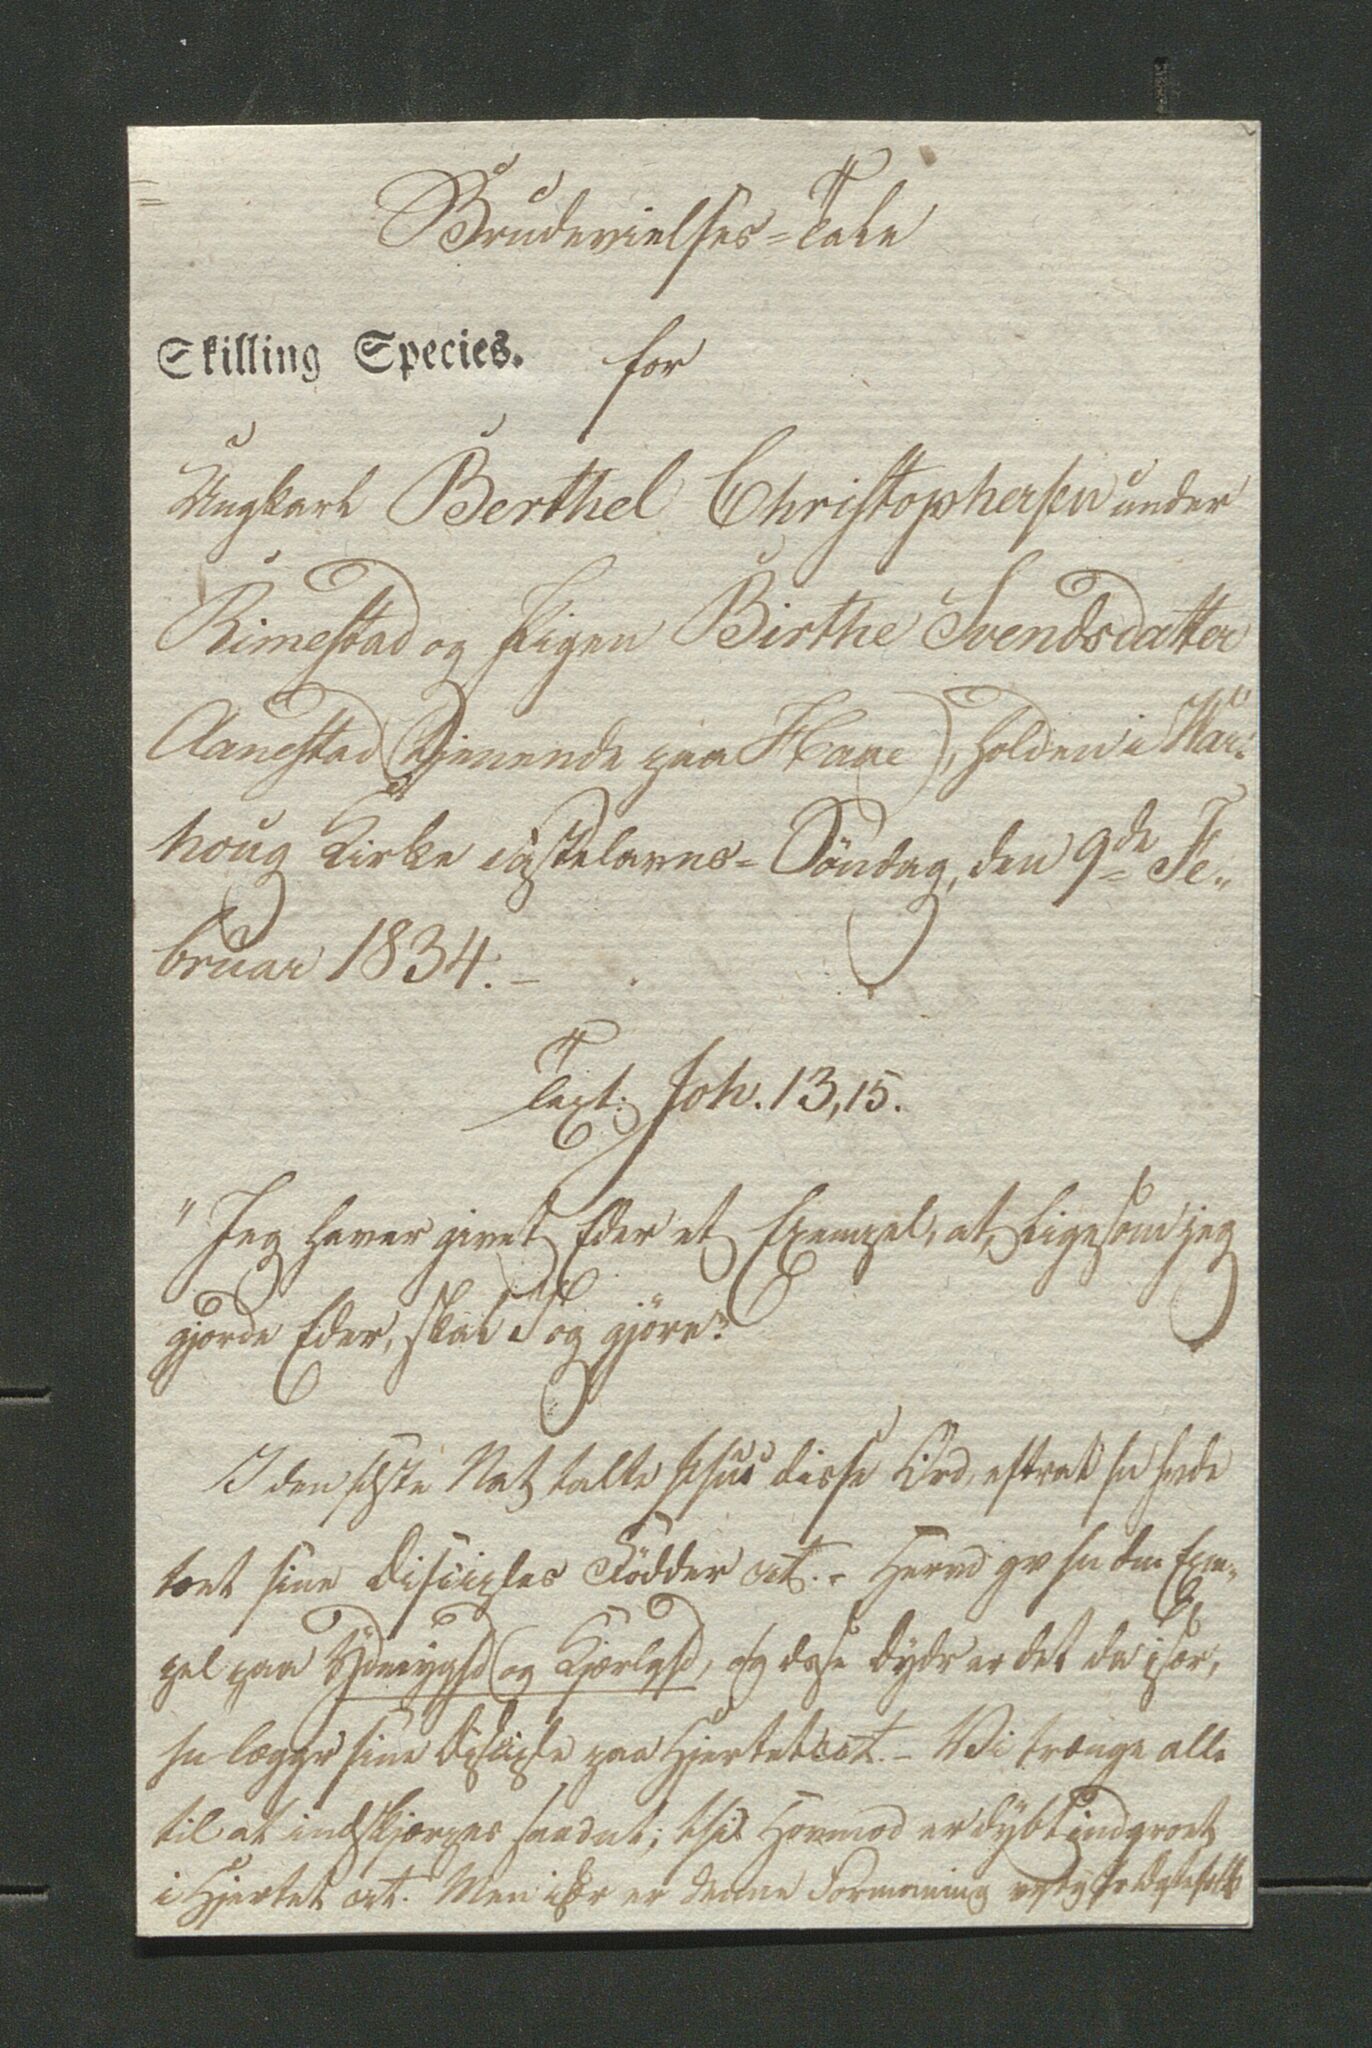 Brudevielses=Tale
Skilling Species. for
Ungkarl Berthel Christophersen under
Rimestad og Pigen Birthe Svendsdatter
Aanestad (tjenende paa Haae), holden i Var-
houg Kirke Fastelavns=Söndag, den 9de Fe-
bruar 1834.-
Text: Joh. 13,15.
"Jeg haver givet Eder et Exempel, at, ligesom jeg
gjorde Eder, skal I og gjöre."
I den sidste Nat talte Jesus disse Ord, efterat han havde
toet sine Disciples Födder etc. - Herved gav han dem Exem-
pel paa Ydmyghed og Kjærlighed, og disse Dyder er det da især,
han lægger sine Disciple paa Hjertet etc. - Vi trænge alle
til at indskjærpes saadant; thi Hovmod er dybt indgroet
i Hjertet etc. Men især er denne Formaning vigtig for Ægtefolk